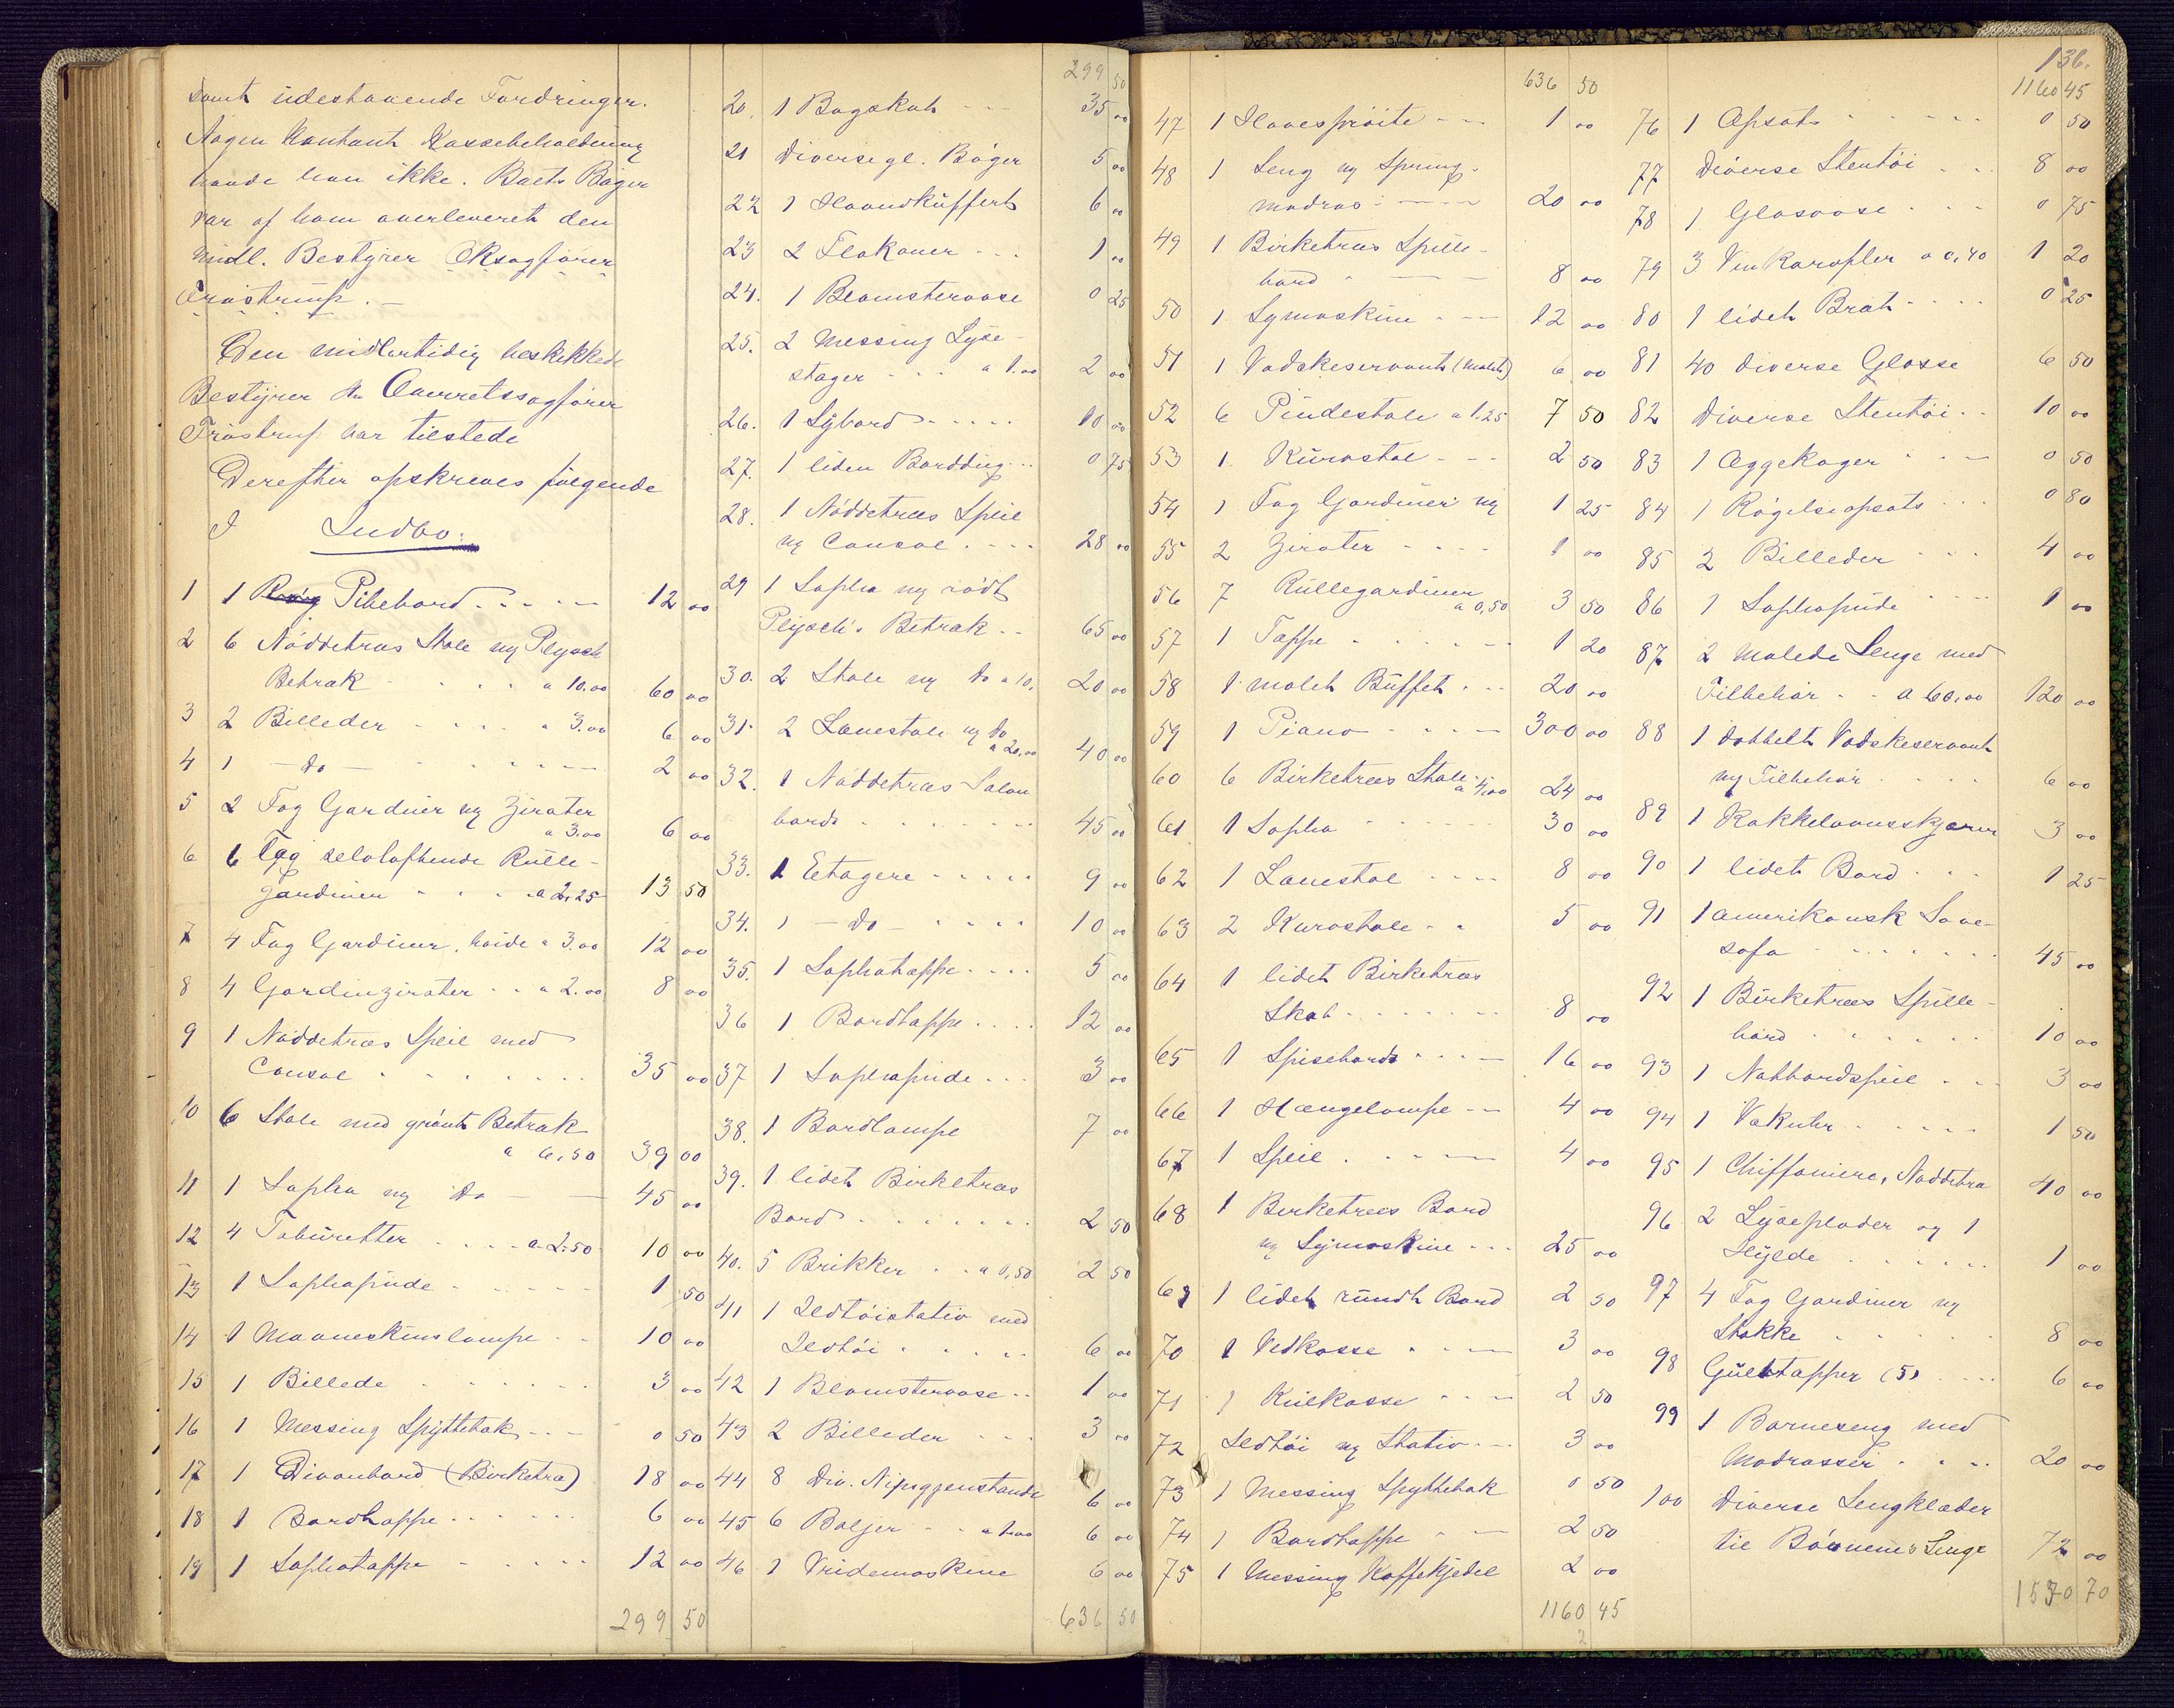 samt udestaaende Fordringer.
Nogen Kontant Kassebeholdning
havde han ikke. Boets Bøger
var af ham overleveret den
midl. Bestyrer Oksagfører
Trøstrup. —
Den midlertidig beskikkede
Bestyrer Hr Overretssagfører
Trøstrup var tilstede
Derefter opskreves følgende
I Indbo:
1 1 Pibebord 12 00
2 6 Nöddetræs Stole m Plysch
Betræk a 10.00 60 00
3 2 Billeder a 3.00 6 00
4 1 — do — 2 00
5 2 Fag Gardiner m Zirater
a 3.00 6 00
6 6 Fag selvløftende Rulle-
gardiner a 2,25 13 50
7 4 Fag Gardiner, hvide a 3.00 12 00
8 4 Gardinzirater a 2.00 8 00
9 1 Nøddetræs Speil med
Consol 35 00
10 6 Stole med grønt Betræk
a 6,50 39 00
11 1 Sopha m do 45 00
12 4 Taburetter a 2.50 10 00
13 1 Sophapude 1 50
14 1 Maaneskinslampe 10 00
15 1 Billede 3 00
16 1 Messing Spyttebak 0 50
17 1 Divanbord (Birketræ) 18 00
18 1 Bordtæppe 6 00
19 1 Sophatæppe 12 00
299 50
299 50
20. 1 Bogskab 35 00
21 Diverse gl. Bøger 5 00
22 1 Haandkuffert 6 00
23 2 Flakoner 1 00
24. 1 Blomstervase 0 25
25. 2 Messing Lyse-
stager a 1.00 2 00
26. 1 Sybord 10 00
27. 1 liden Borddug 0 75
28. 1 Nøddetræs Speil
m Consol 28 00
29 1 Sopha m rødt
Plysch's Betræk 65 00
30. 2 Stole m do a 10. 20 00
31. 2 Lænestole m do
a 20.00 40 00
32. 1 Nøddetræs Salon
bord 45 00
33. 1 Etagere 9 00
34. 1 — do — 10 00
35. 1 Sophatæppe 5 00
36 1 Bordtæppe 12 00
37 1 Sophapude 3 00
38. 1 Bordlampe 7 00
39. 1 lidet Birketræs
Bord 2 50
40. 5 Brikker a 0,50 2 50
41 1 Ildtøistativ med
Ildtøi 6 00
42 1 Blomstervase 1 00
43 2 Billeder 3 00
44 8 Div. Nipsgjenstande 6 00
45 6 Baljer a 1.00 6 00
46. 1 Vridemaskine 6 00
636 50
636 50
47 1 Havesprøite 1 00
48 1 Seng m Spring-
madras 20 00
49 1 Birketræs Spille-
bord 8 00
50 1 Symaskine 12 00
51 1 Vadskeservant (malet) 6 00
52 6 Pindestole a 1.25 7 50
53 1 Kurvstol 2 50
54 1 Fag Gardiner m 1 25
55 2 Zirater 1 00
56 7 Rullegardiner
a 0,50 3 50
57 1 Tæppe 1 20
58 1 malet Buffet 20 00
59 1 Piano 300 00
60 6 Birketræs Stole
a 4,00 24 00
61 1 Sopha 30 00
62 1 Lænestol 8 00
63 2 Kurvstole 5 00
64 1 lidet Birketræs
Skab 8 00
65 1 Spisebord 16 00
66 1 Hængelampe 4 00
67 1 Speil 4 00
68 1 Birketræs Bord
m Symaskine 25 00
69 1 lidet rundt Bord 2 50
70 1 Vedkasse 3 00
71 1 Kulkasse 2 50
72 Ildtøi m Stativ 3 00
73 1 Messing Spyttebak 0 50
74 1 Bordtæppe 2 50
75 1 Messing Kaffekjedel 2 00
1160 45
2
136.
1160 45
76 1 Opsats 0 50
77 Diverse Stentøi 8 00
78 1 Glasvase 0 75
79 3 Vinkarafler a 0,40 1 20
80 1 lidet Bræt 0 25
81 40 diverse Glasse 6 50
82 Diverse Stentøi 10 00
83 1 Æggekoger 0 50
84 1 Røgelseopsats 0 80
85 2 Billeder 4 00
86 1 Sophapude 1 00
87 2 malede Senge med
Tilbehør a 60,00 120 00
88 1 dobbelt Vadskeservant
m Tilbehør 6 00
89 1 Kakkelovnsskjærm 3 00
90 1 lidet Bord 1 25
91 1 amerikansk Sove-
sofa 45 00
92 1 Birketræs Spille-
bord 10 00
93 1 Natbordspeil 3 00
94 1 Vækuhr 1 50
95 1 Chiffoniere, Nøddetræ 40 00
96 2 Lyseplader og 1
Hylde 1 00
97 4 Fag Gardiner m
Stokke 8 00
98 Gulvtæpper (5) 6 00
99 1 Barneseng med
Madrasser 20 00
100 Diverse Sengklæder
til Børnenes Senge 72 00
1530 70